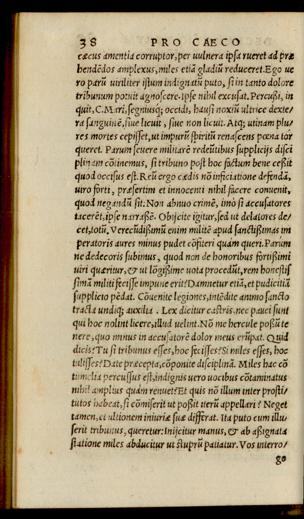 38 PRO CAECO
cæcus amentia corruptor, per uulnera ipsa rueret ad præ
hendẽdos amplexus, miles etiã gladiũ reduceret. Ego ue
ro parũ uiriliter istum indignatũ puto, si in tanto dolore
tribunum potuit agnoscere. ipse nihil excusat. Percussi, in
quit, C. Mari, segniusq; occidi, hausi noxiũ ultrice dexte/
ra sanguinẽ, siue licuit, siue non licuit. Atq; utinam plu/
res mortes cepisset, ut impurũ spiritũ renascens pœna tor
queret. Parum seuere militarẽ redeũtibus supplicijs disci
plinam cõtinemus, si tribuno post hoc factum bene cessit
quod occisus est. Reũ ergo cædis nõ inficiatione defendã,
uiro forti, præsertim et innocenti nihil facere conuenit,
quod negandũ sit. Non abnuo crimẽ, imò si accusatores
tacerẽt, ipse narrassẽ. Obijcite igitur, sed ut delatores de/
cet, totũ, Verecũdissimũ enim militẽ apud sanctissimas im
peratoris aures minus pudet cõfiteri quàm queri. Parum
ne dedecoris subimus, quod non de honoribus fortissimi
uiri quæritur, & ut lõgissime uota procedũt, rem honestis
simã militi fecisse impune erit? Damnetur etiã, et pudicitiã
supplicio pẽdat. Cõuenite legiones, intẽdite animo sancto
tracta undiq; auxilia. Lex dicitur castris. nec pauci sunt
qui hoc nolint licere, illud uelint. Nõ me hercule possũ te
nere, quo minus in accusatorẽ dolor meus erũpat. Quid
dicis? Tu si tribunus esses, hoc fecisses? Si miles esses, hoc
tulisses? Date præcepta, cõponite disciplinã. Miles hac cõ
tumelia percussus est, indignis uero uocibus cõtaminatus
nihil amplius quàm renuet? Et quis nõ illum inter prosti/
tutos habeat, si cõmiserit ut possit iterũ appellari? Neget
tamen, et ultionem iniuriæ suæ differat. Ita puto eum illu/
serit tribunus, queretur: Inijcitur manus, & ab assignata
statione miles abducitur ut stuprũ patiatur. Vos interro/
go